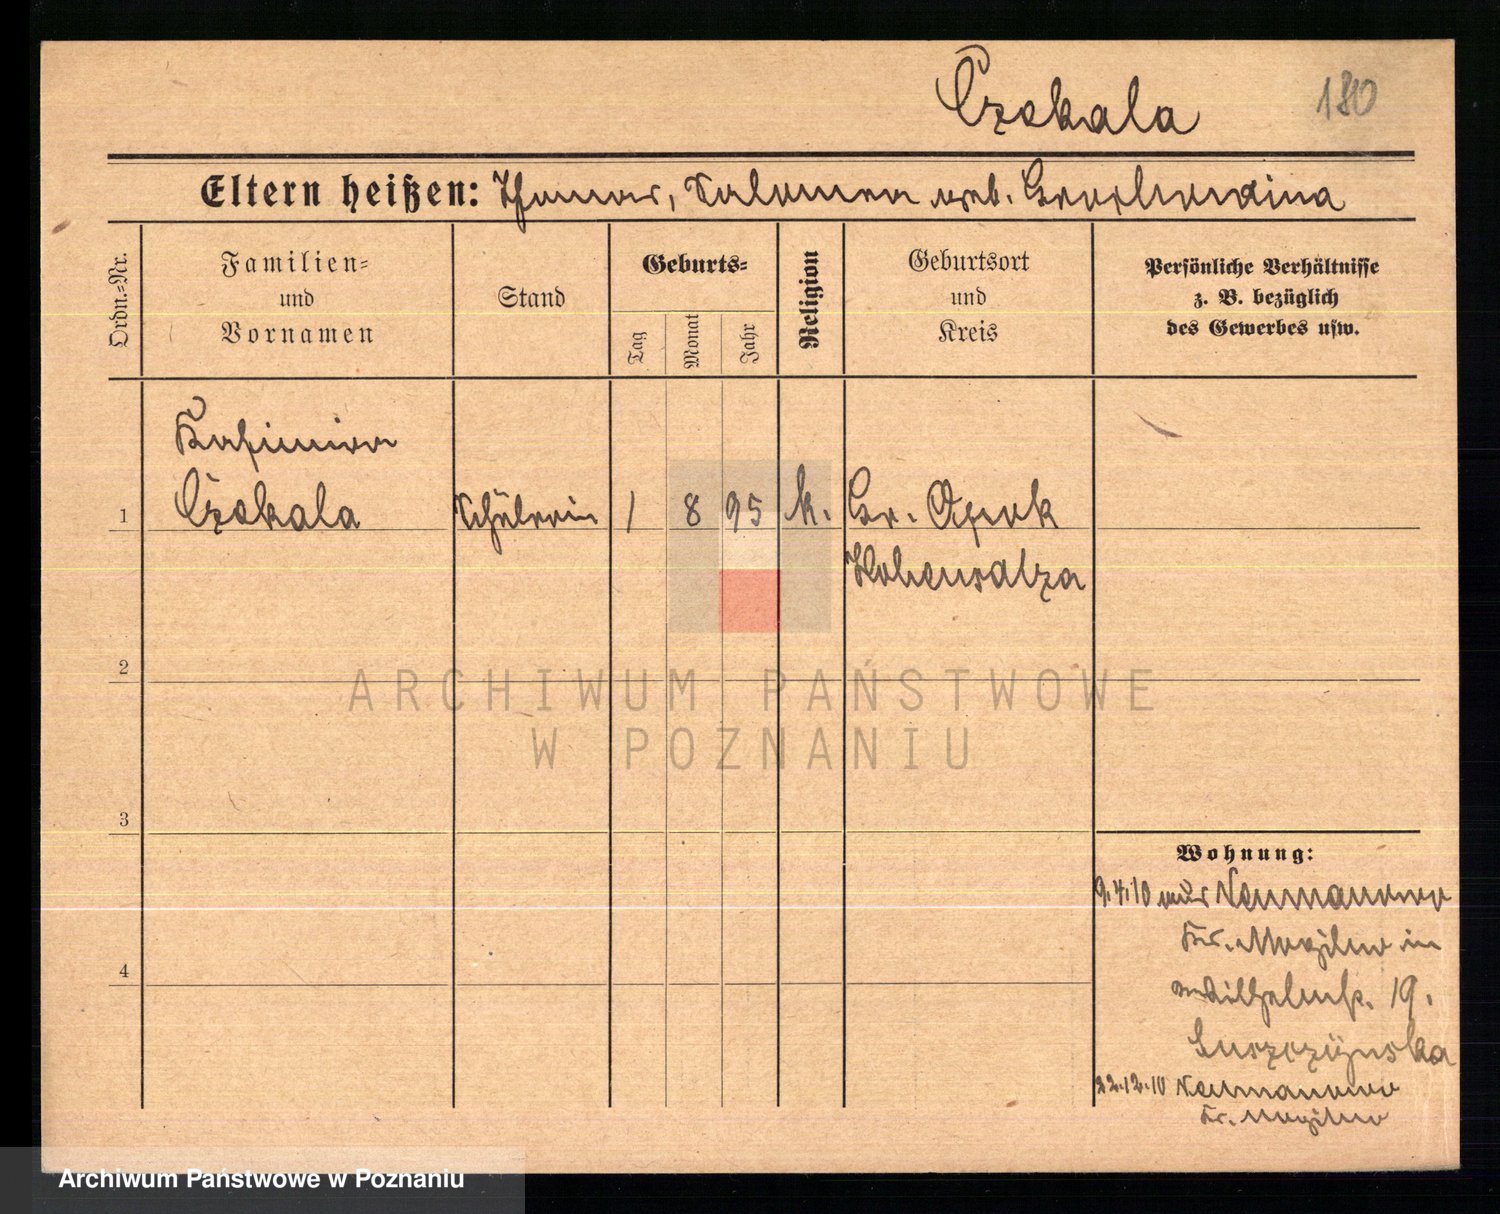 Czekala
180
Eltern heißen: Thomas, Salomea geb. Grochowina
Ordn.-Nr.
Familien- und Vornamen
Stand
Geburts-
Tag
Monat
Jahr
Religion
Geburtsort und Kreis
Persönliche Verhältnisse
z. B. bezüglich
des Gewerbes usw.
Kasimira
1 Czekala Schülerin 1 8 95 k. Gr. Opok
Hohensalza
2
3
4
Wohnung:
9.4.10 aus
Kr. Mogilno in
Wilhelmstr. 19.
22.12.10
Kr. Mogilno
ARCHIWUM PAŃSTWOWE
W POZNANIU
Archiwum Państwowe w Poznaniu